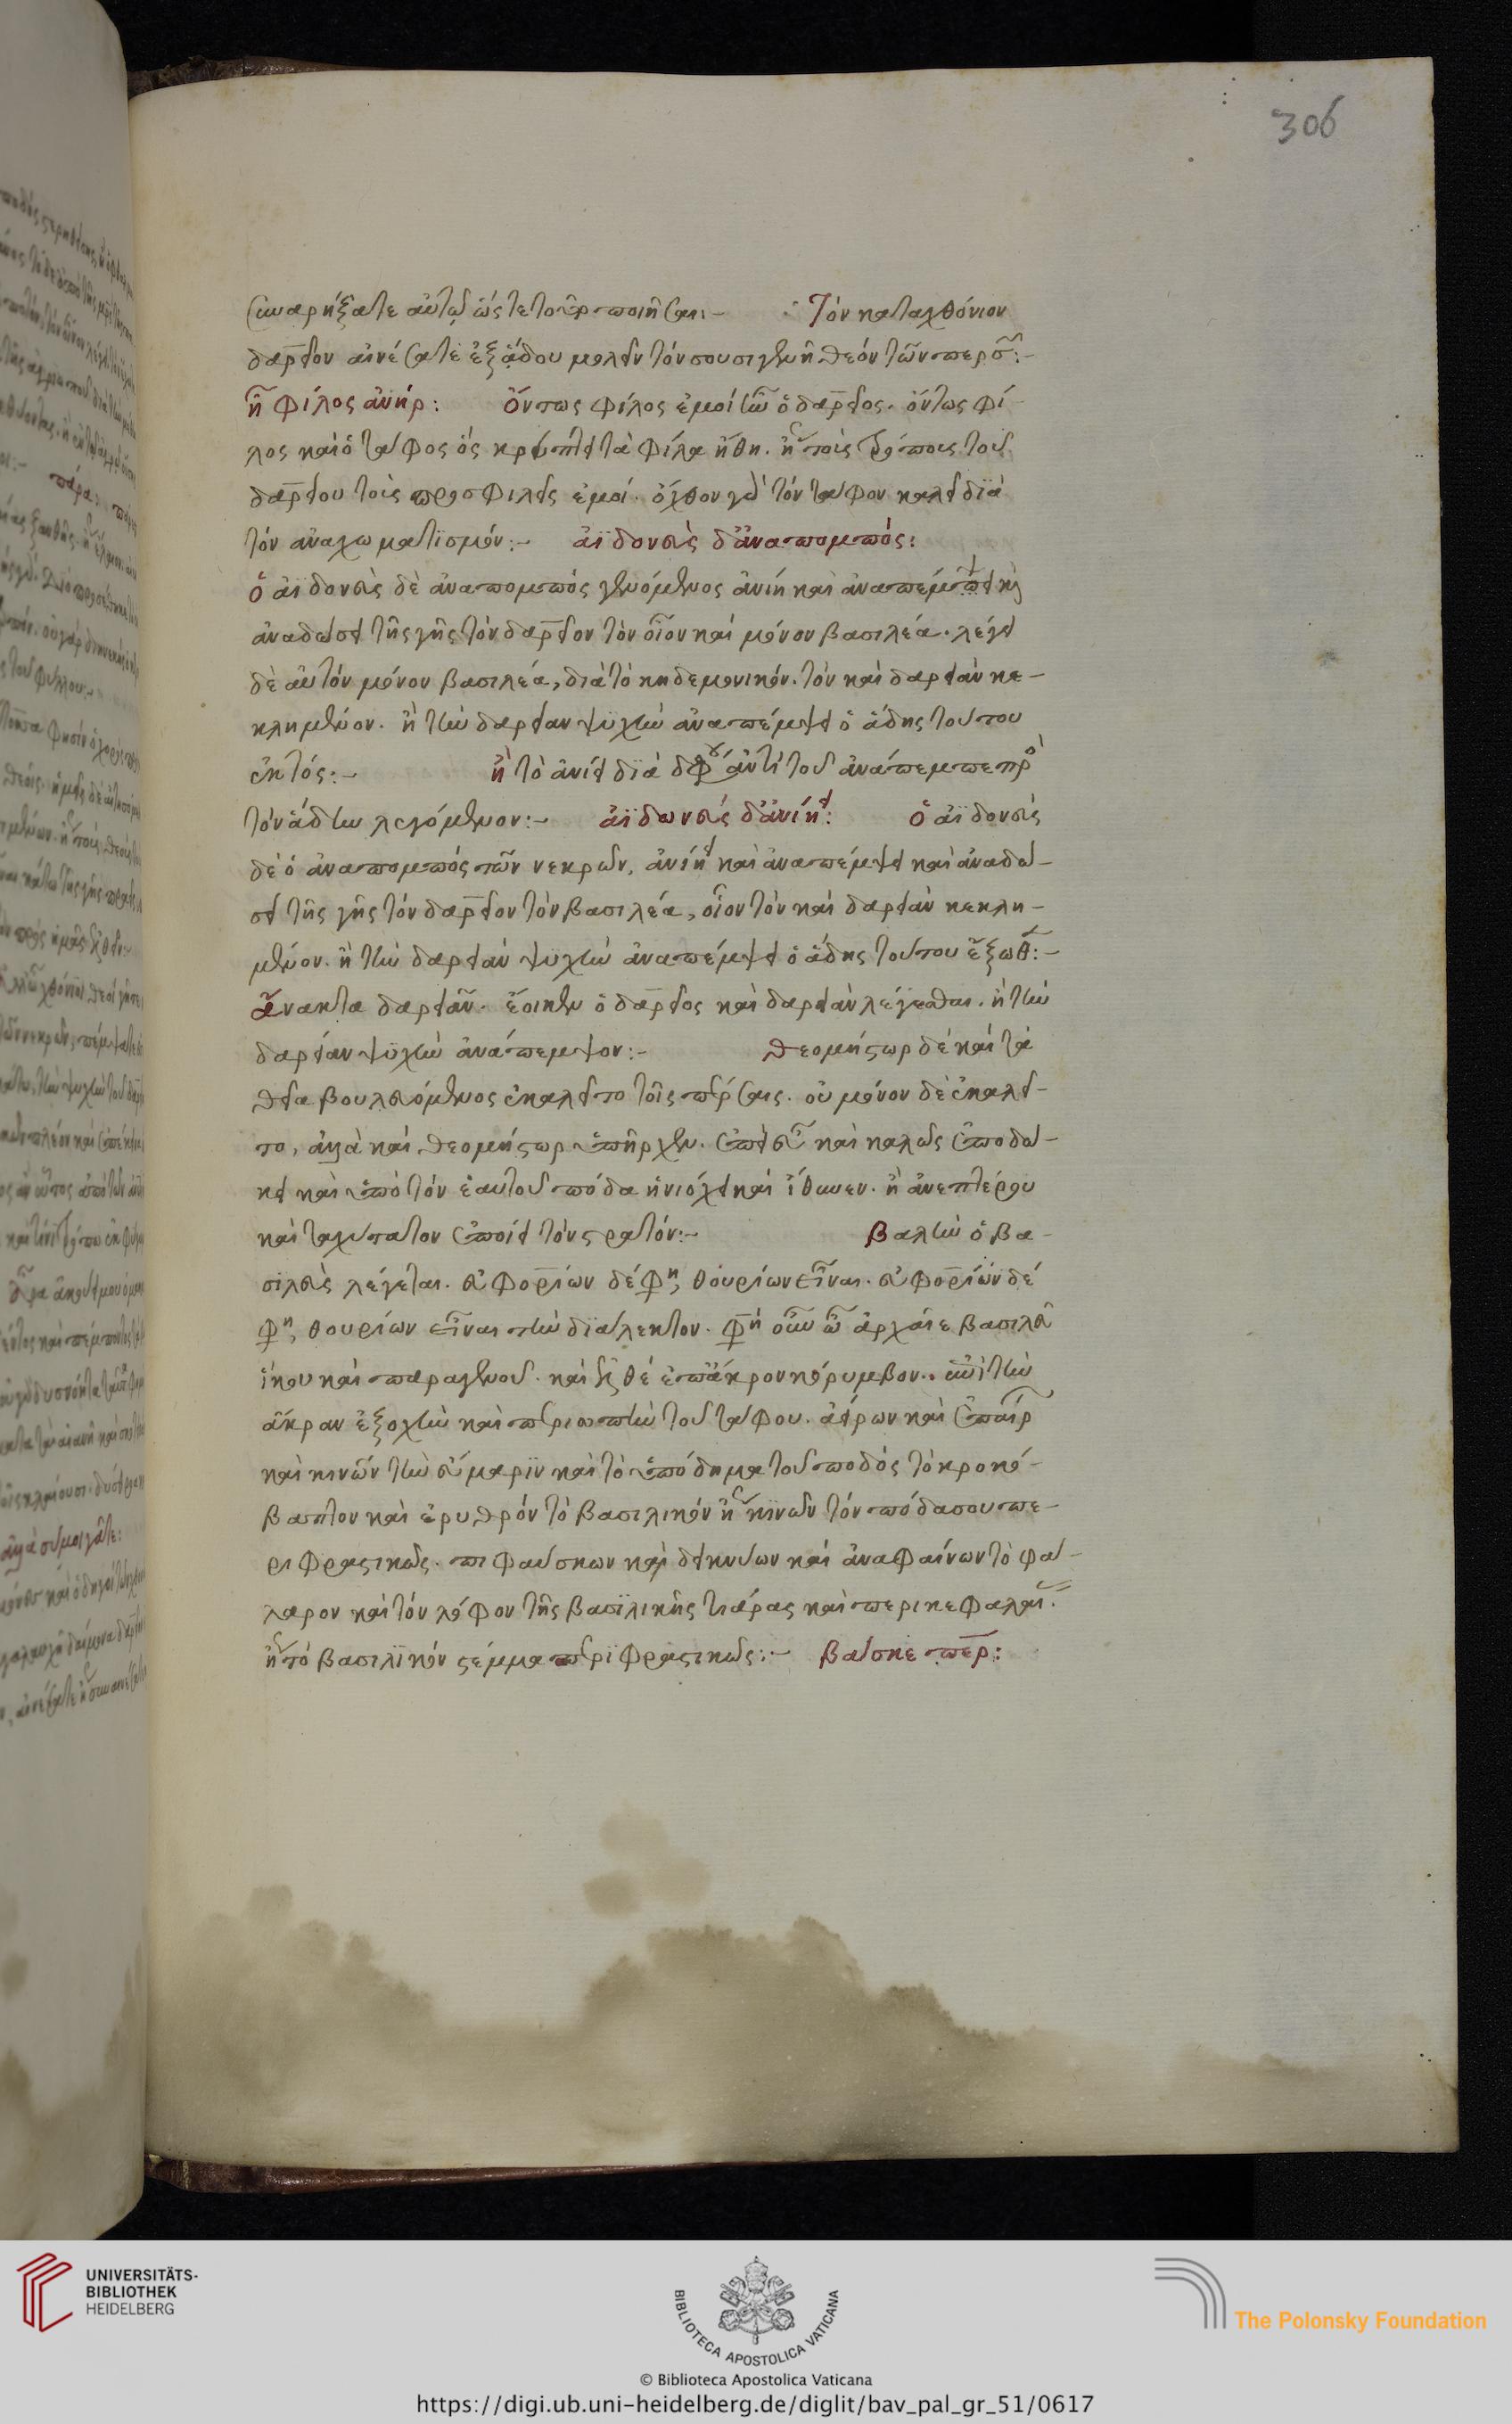 306
συναρήξατε αὐτῷ ὥστε τοῦτο ποιῆσαι:– Τὸν καταχθόνιον
δαρεῖον αἰνέσατε ἐξ ᾅδου μολεῖν τὸν σουσιγενῆ θεὸν τῶν περσ:–
ἢ φίλος ἀνήρ: Ὄντως φίλος ἐμοὶ ἦν ὁ δαρεῖος. ὄντως φί
λος καὶ ὁ τάφος ὃς κρύπτει τὰ φίλα ἤθη. ἤγουν τοὺς τρόπους τοῦ
δαρείου τοὺς προσφιλεῖς ἐμοί. ὄχθον γὰρ τὸν τάφον καλεῖ διὰ
τὸν ἀναχωματισμόν:– ἀϊδονεὺς δ' ἀναπομπός:
ὁ ἀϊδονεὺς δὲ ἀναπομπὸς γενόμενος ἀνίη καὶ ἀναπέμπει καὶ
ἀναδώσει τῆς γῆς τὸν δαρεῖον τὸν οἷον καὶ μόνον βασιλέα. λέγει
δὲ αὐτὸν μόνον βασιλέα, διὰ τὸ κηδεμονικόν. τὸν καὶ δαρειὰν κε–
κλημένον. ἢ τὴν δαρείαν ψυχὴν ἀναπέμψει ὁ ᾅδης τούτου
ἐκτός:– ἢ τὸ ἀνίει διὰ διφθόγγου ἀντὶ τοῦ ἀνάπεμπε πρὸ
τὸν ᾅδην λεγόμενον:– ἀϊδωνεύς δ' ἀνίηι: ὁ ἀϊδονεὺς
δὲ ὁ ἀναπομπὸς τῶν νεκρῶν, ἀνίηι καὶ ἀναπέμψει καὶ ἀναδώ–
σει τῆς γῆς τὸν δαρεῖον τὸν βασιλέα, οἷον τὸν καὶ δαρειὰν κεκλη–
μένον. ἢ τὴν δαρειὰν ψυχὴν ἀναπέμψει ὁ ᾅδης τούτου ἔξωθ:–
ἄνακτα δαρειᾶν. ἔοικεν ὁ δαρεῖος καὶ δαρειὰν λέγεσθαι. ἢ τὴν
δαρείαν ψυχὴν ἀνάπεμψον:– θεομήστωρ δὲ καὶ τὰ
θεῖα βουλευόμενος ἐκαλεῖτο τοῖς πέρσαις. οὐ μόνον δὲ ἐκαλεῖ–
το, ἀλλὰ καὶ θεομήστωρ ὑπῆρχεν. ἐπεὶ εὖ καὶ καλῶς ἐποδώ–
κει καὶ ὑπὸ τὸν ἑαυτοῦ πόδα ἡνιόχει καὶ ἴθυνεν. ἢ ἀνεπτέρου
καὶ ταχύτατον ἐποίει τὸν στρατόν:– βαλὴν ὁ βα–
σιλεὺς λέγεται. εὐφορίων δέ φη, θουρίων εἶναι. εὐφορίων δέ
φη, θουρίων εἶναι τὴν διάλεκτον. φη οὖν ὦ ἀρχαῖε βασιλεῦ
ἵκου καὶ παραγενοῦ. καὶ ἐλθὲ ἐπ' ἄκρον κόρυμβον. ἐπὶ τὴν
ἄκραν ἐξοχὴν καὶ περιωπὴν τοῦ τάφου. ἀείρων καὶ ἐπαίρ
καὶ κινῶν τὴν εὔμαριν καὶ τὸ ὑπόδημα τοῦ ποδὸς τὸ κροκό–
βαπτον καὶ ἐρυθρὸν τὸ βασιλικὸν ἤγουν κινῶν τὸν πόδα σου πε–
ριφραστικῶς. πιφαύσκων καὶ δεικνύων καὶ ἀναφαίνων τὸ φά–
λαρον καὶ τὸν λόφον τῆς βασιλικῆς τιάρας καὶ περικεφαλαί.
ἤγουν τὸ βασιλικὸν στέμμα περιφραστικῶς:– βάσκε πέρ:
UNIVERSITÄTS-
BIBLIOTHEK
HEIDELBERG
BIBLIOTECA APOSTOLICA VATICANA
The Polonsky Foundation
© Biblioteca Apostolica Vaticana
https://digi.ub.uni-heidelberg.de/diglit/bav_pal_gr_51/0617